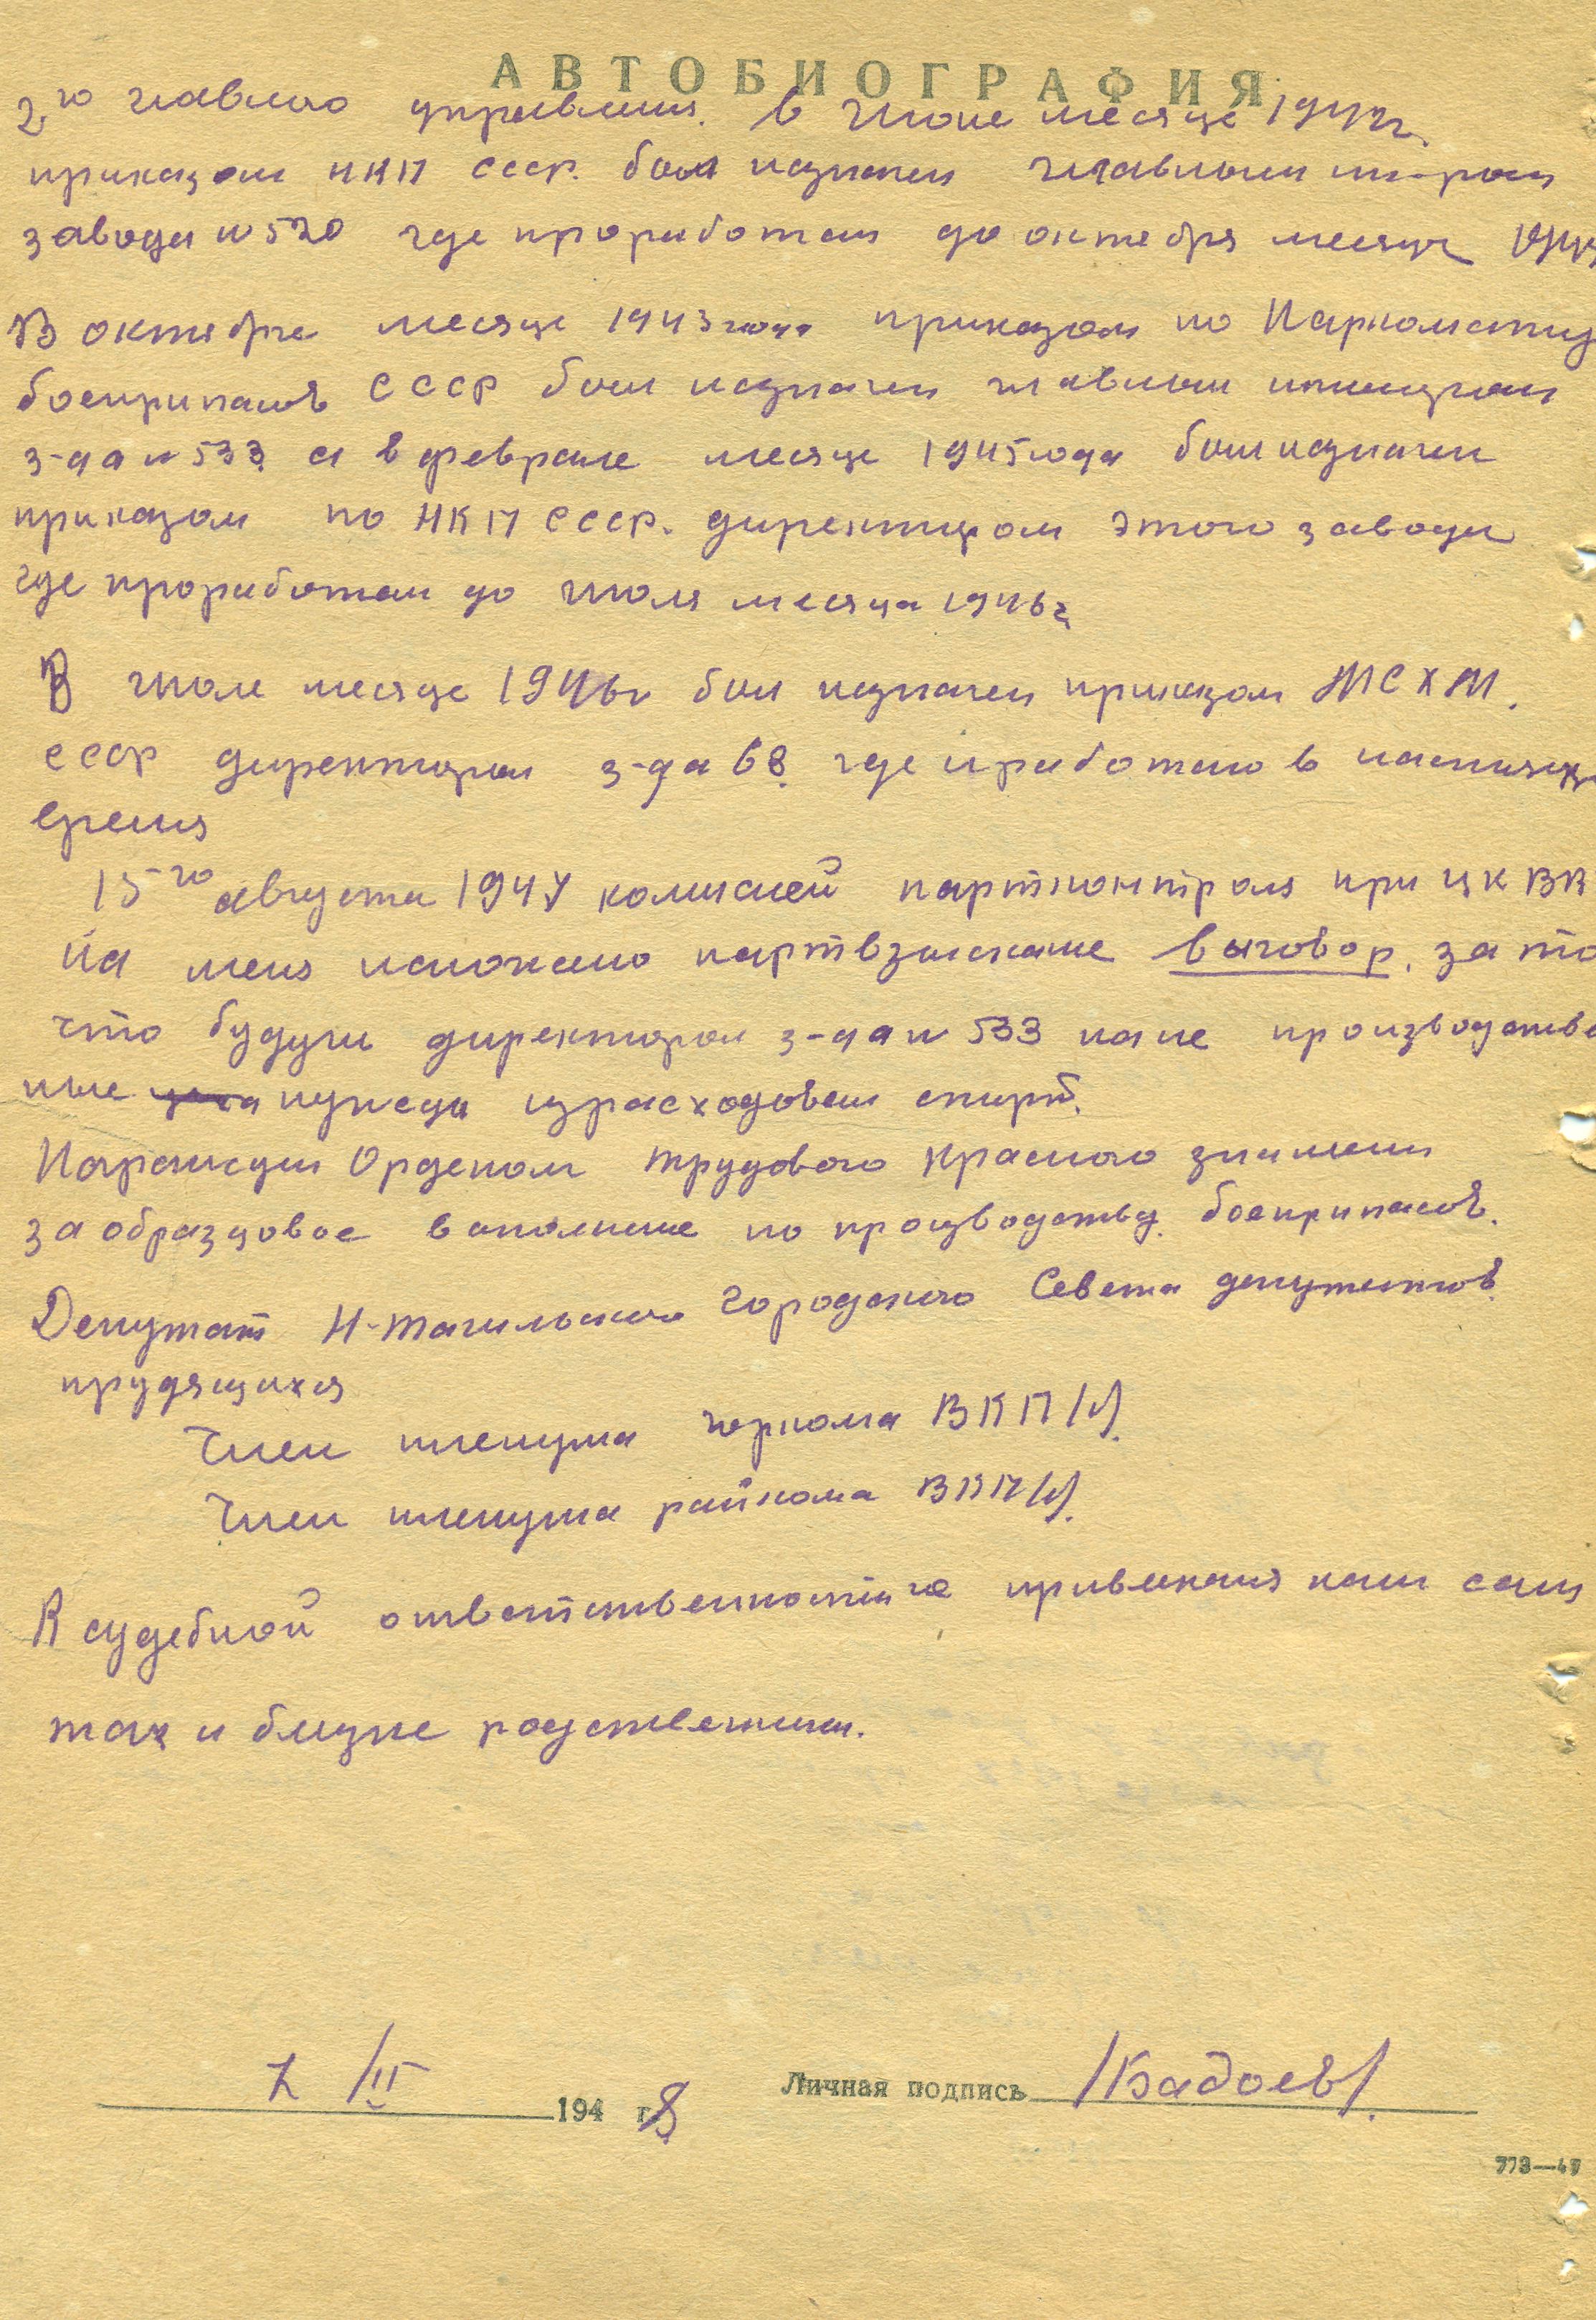 АВТОБИОГРАФИЯ
2го главного управления. В июне месяце 1942г.
приказом НКП СССР. был назначен главным
завода № 570 где проработал до октября месяца
В октябре месяце 1943 года приказом по Наркомату
боеприпасов СССР был назначен главным инженером
з-да № 533 а в феврале месяце 1945 года был назначен
приказом по НКП СССР. директором этого завода
где проработал до июля месяца 1946г
В июле месяце 1946г был назначен приказом МСХМ.
СССР директором з-да 68 где и работаю в настояще
время
15го августа 1947 комисией партконтроля при ЦК ВК
На меня наложено партвзыскание выговор, за то
что будучи директором з-да № 533 на не производстве
ные нужды израсходовал спирт.
Награжден Орденом Трудового Красного знамени
за образцовое выполнение по производству боеприпасов.
Депутат Н-Тагильского Городского Совета депутатов
трудящихся
Член пленума горкома ВКП/б/.
Член пленума райкома ВКП/б/.
К судебной ответственности не привлекался как сам
так и близкие родственники.
7/II 1948 г.
Личная подпись /Бадоев/.
773—47